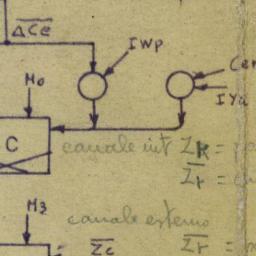 ΔCe
IWp
Cer
Mo
IYa
C
canale int ZR =
Zr =
M3
canale esterno
Zc
Zr =